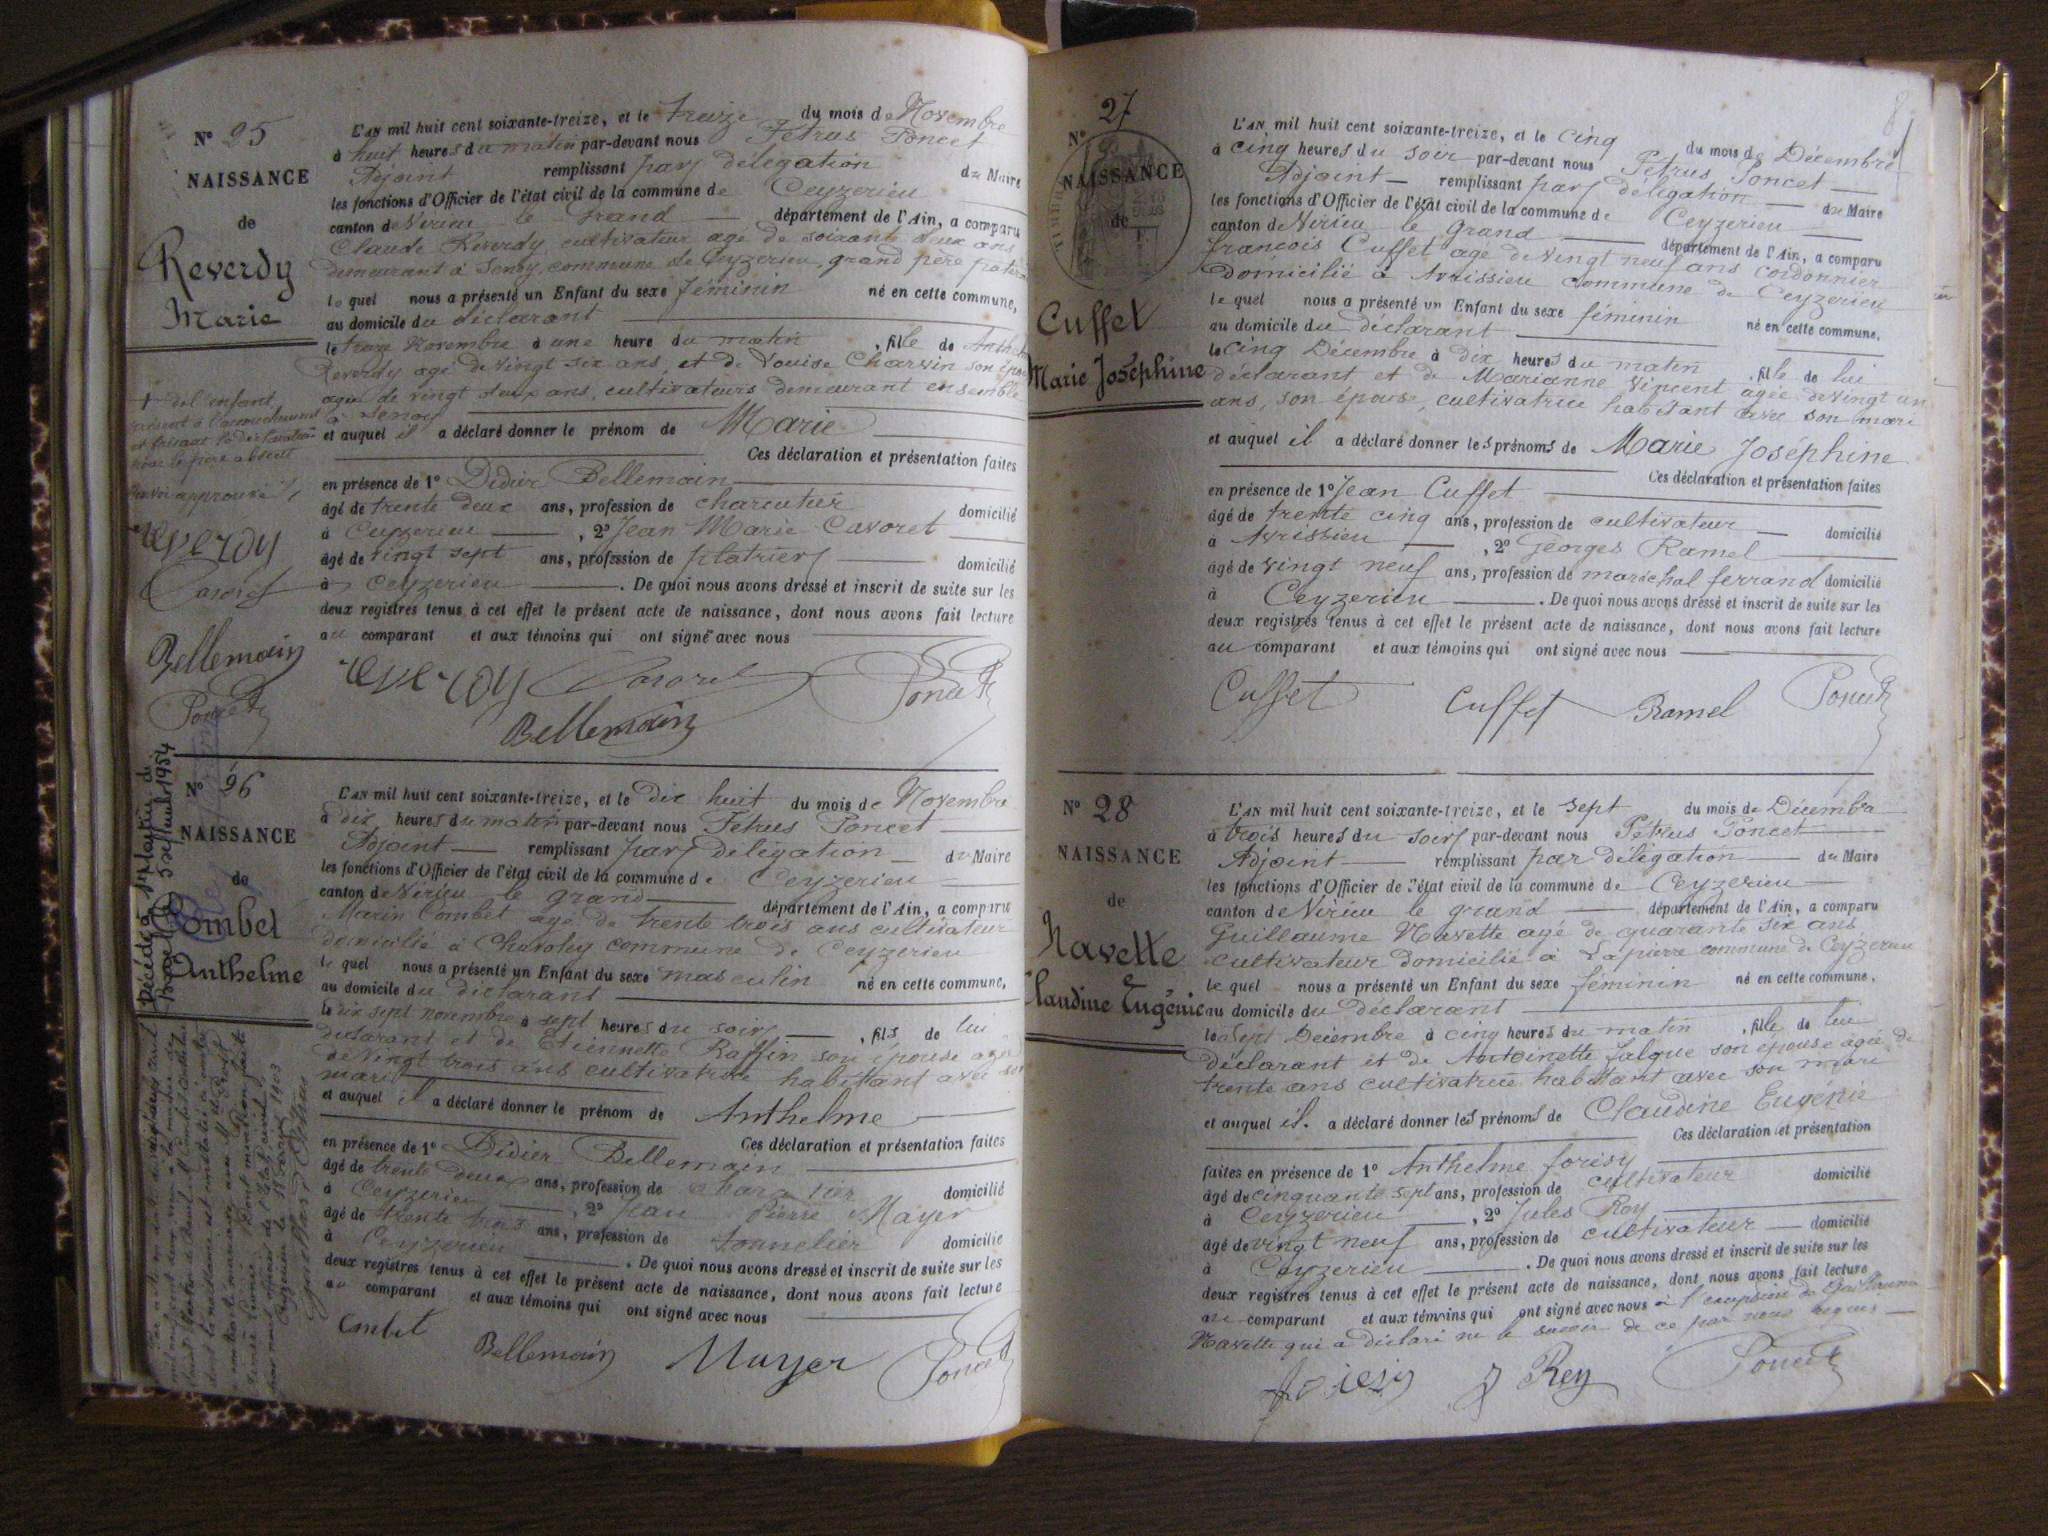 N° 25
NAISSANCE
de
Reverdy
Marie
L'AN mil huit cent soixante-treize, et le treize du mois de Novembre
à huit heures du matin par-devant nous Petrus Poncet
Adjoint remplissant par délégation du Maire
les fonctions d'Officier de l'état civil de la commune de Ceyzerieu
canton de Virieu le Grand département de l'Ain, a comparu
Claude Reverdy cultivateur agé de soixante deux ans
demeurant à Senoy, commune de Ceyzerieu, grand père
le quel nous a présenté un Enfant du sexe féminin né en cette commune,
au domicile du déclarant
le treize Novembre à une heure du matin , fille de
Reverdy agé de vingt six ans, et de Louise Charvin son
agée de vingt deux ans, cultivateurs demeurant ensemble
à Senoy
et auquel il a déclaré donner le prénom de Marie
Ces déclaration et présentation faites
en présence de 1° Didier Bellemain
âgé de trente deux ans, profession de charcutier domicilié
à Ceyzerieu , 2° Jean Marie Cavoret
âgé de vingt sept ans, profession de platrier domicilié
à Ceyzerieu . De quoi nous avons dressé et inscrit de suite sur les
deux registres tenus à cet effet le présent acte de naissance, dont nous avons fait lecture
au comparant et aux témoins qui ont signé avec nous
Reverdy Cavoret Poncet
Bellemain
+ de l'enfant
présent à l'accouchement
et faisant la déclaration
pour le père absent
Renvoi approuvé
Reverdy
Cavoret
Bellemain
Poncet
N° 26
NAISSANCE
de
Combet
Anthelme
Décédé à
le 5 septembre 1954
L'AN mil huit cent soixante-treize, et le dix huit du mois de Novembre
à dix heures du matin par-devant nous Petrus Poncet
Adjoint remplissant par délégation du Maire
les fonctions d'Officier de l'état civil de la commune de Ceyzerieu
canton de Virieu le grand département de l'Ain, a comparu
Marin Combet agé de trente trois ans cultivateur
domicilié à Chavoley commune de Ceyzerieu
le quel nous a présenté un Enfant du sexe masculin né en cette commune,
au domicile du déclarant
le dix sept novembre à sept heures du soir , fils de lui
déclarant et de Etiennette Raffin son épouse agée
de vingt trois ans cultivatrice habittant avec son
mari
et auquel il a déclaré donner le prénom de Anthelme
Ces déclaration et présentation faites
en présence de 1° Didier Bellemain
âgé de trente deux ans, profession de domicilié
à Ceyzerieu , 2° Jean Pierre Mayer
âgé de trente trois ans, profession de tonnelier domicilié
à Ceyzerieu . De quoi nous avons dressé et inscrit de suite sur les
deux registres tenus à cet effet le présent acte de naissance, dont nous avons fait lecture
au comparant et aux témoins qui ont signé avec nous
Combet Bellemain Mayer Poncet
8
N° 27
NAISSANCE
de
Cuffet
Marie Joséphine
L'AN mil huit cent soixante-treize, et le cinq du mois de Décembre
à cinq heures du soir par-devant nous Petrus Poncet
Adjoint remplissant par délégation du Maire
les fonctions d'Officier de l'état civil de la commune de Ceyzerieu
canton de Virieu le grand département de l'Ain, a comparu
françois Cuffet agé de vingt neuf ans cordonnier
domicilié à Avrissieu commune de Ceyzerieu
le quel nous a présenté un Enfant du sexe féminin né en cette commune,
au domicile du déclarant
le cinq Décembre à dix heures du matin , fille de lui
déclarant et de Marianne Vincent agée de vingt un
ans, son épouse, cultivatrice habitant avec son mari
et auquel il a déclaré donner les prénoms de Marie Joséphine
Ces déclaration et présentation faites
en présence de 1° Jean Cuffet
âgé de trente cinq ans, profession de cultivateur domicilié
à Avrissieu , 2° Georges Ramel
âgé de vingt neuf ans, profession de maréchal ferrand domicilié
à Ceyzerieu . De quoi nous avons dressé et inscrit de suite sur les
deux registres tenus à cet effet le présent acte de naissance, dont nous avons fait lecture
au comparant et aux témoins qui ont signé avec nous
Cuffet Cuffet Ramel Poncet
N° 28
NAISSANCE
de
Navette
Claudine Eugénie
L'AN mil huit cent soixante-treize, et le sept du mois de Décembre
à trois heures du soir par-devant nous Petrus Poncet
Adjoint remplissant par délégation du Maire
les fonctions d'Officier de l'état civil de la commune de Ceyzerieu
canton de Virieu le grand département de l'Ain, a comparu
Guillaume Navette agé de quarante six ans
cultivateur domicilié à Lapierre commune de Ceyzerieu
le quel nous a présenté un Enfant du sexe féminin né en cette commune,
au domicile du déclarant
le sept Décembre à cinq heures du matin , fille de lui
déclarant et de Antoinette falque son épouse agée de
trente ans cultivatrice habittant avec son mari
et auquel il a déclaré donner les prénoms de Claudine Eugénie
Ces déclaration et présentation
faites en présence de 1° Anthelme forisy
âgé de cinquante sept ans, profession de cultivateur domicilié
à Ceyzerieu , 2° Jules Rey
âgé de vingt neuf ans, profession de cultivateur domicilié
à Ceyzerieu . De quoi nous avons dressé et inscrit de suite sur les
deux registres tenus à cet effet le présent acte de naissance, dont nous avons fait lecture
au comparant et aux témoins qui ont signé avec nous à l'exception de Guillaume
Navette qui a déclaré ne le savoir de ce par nous requis
J Rey Poncet